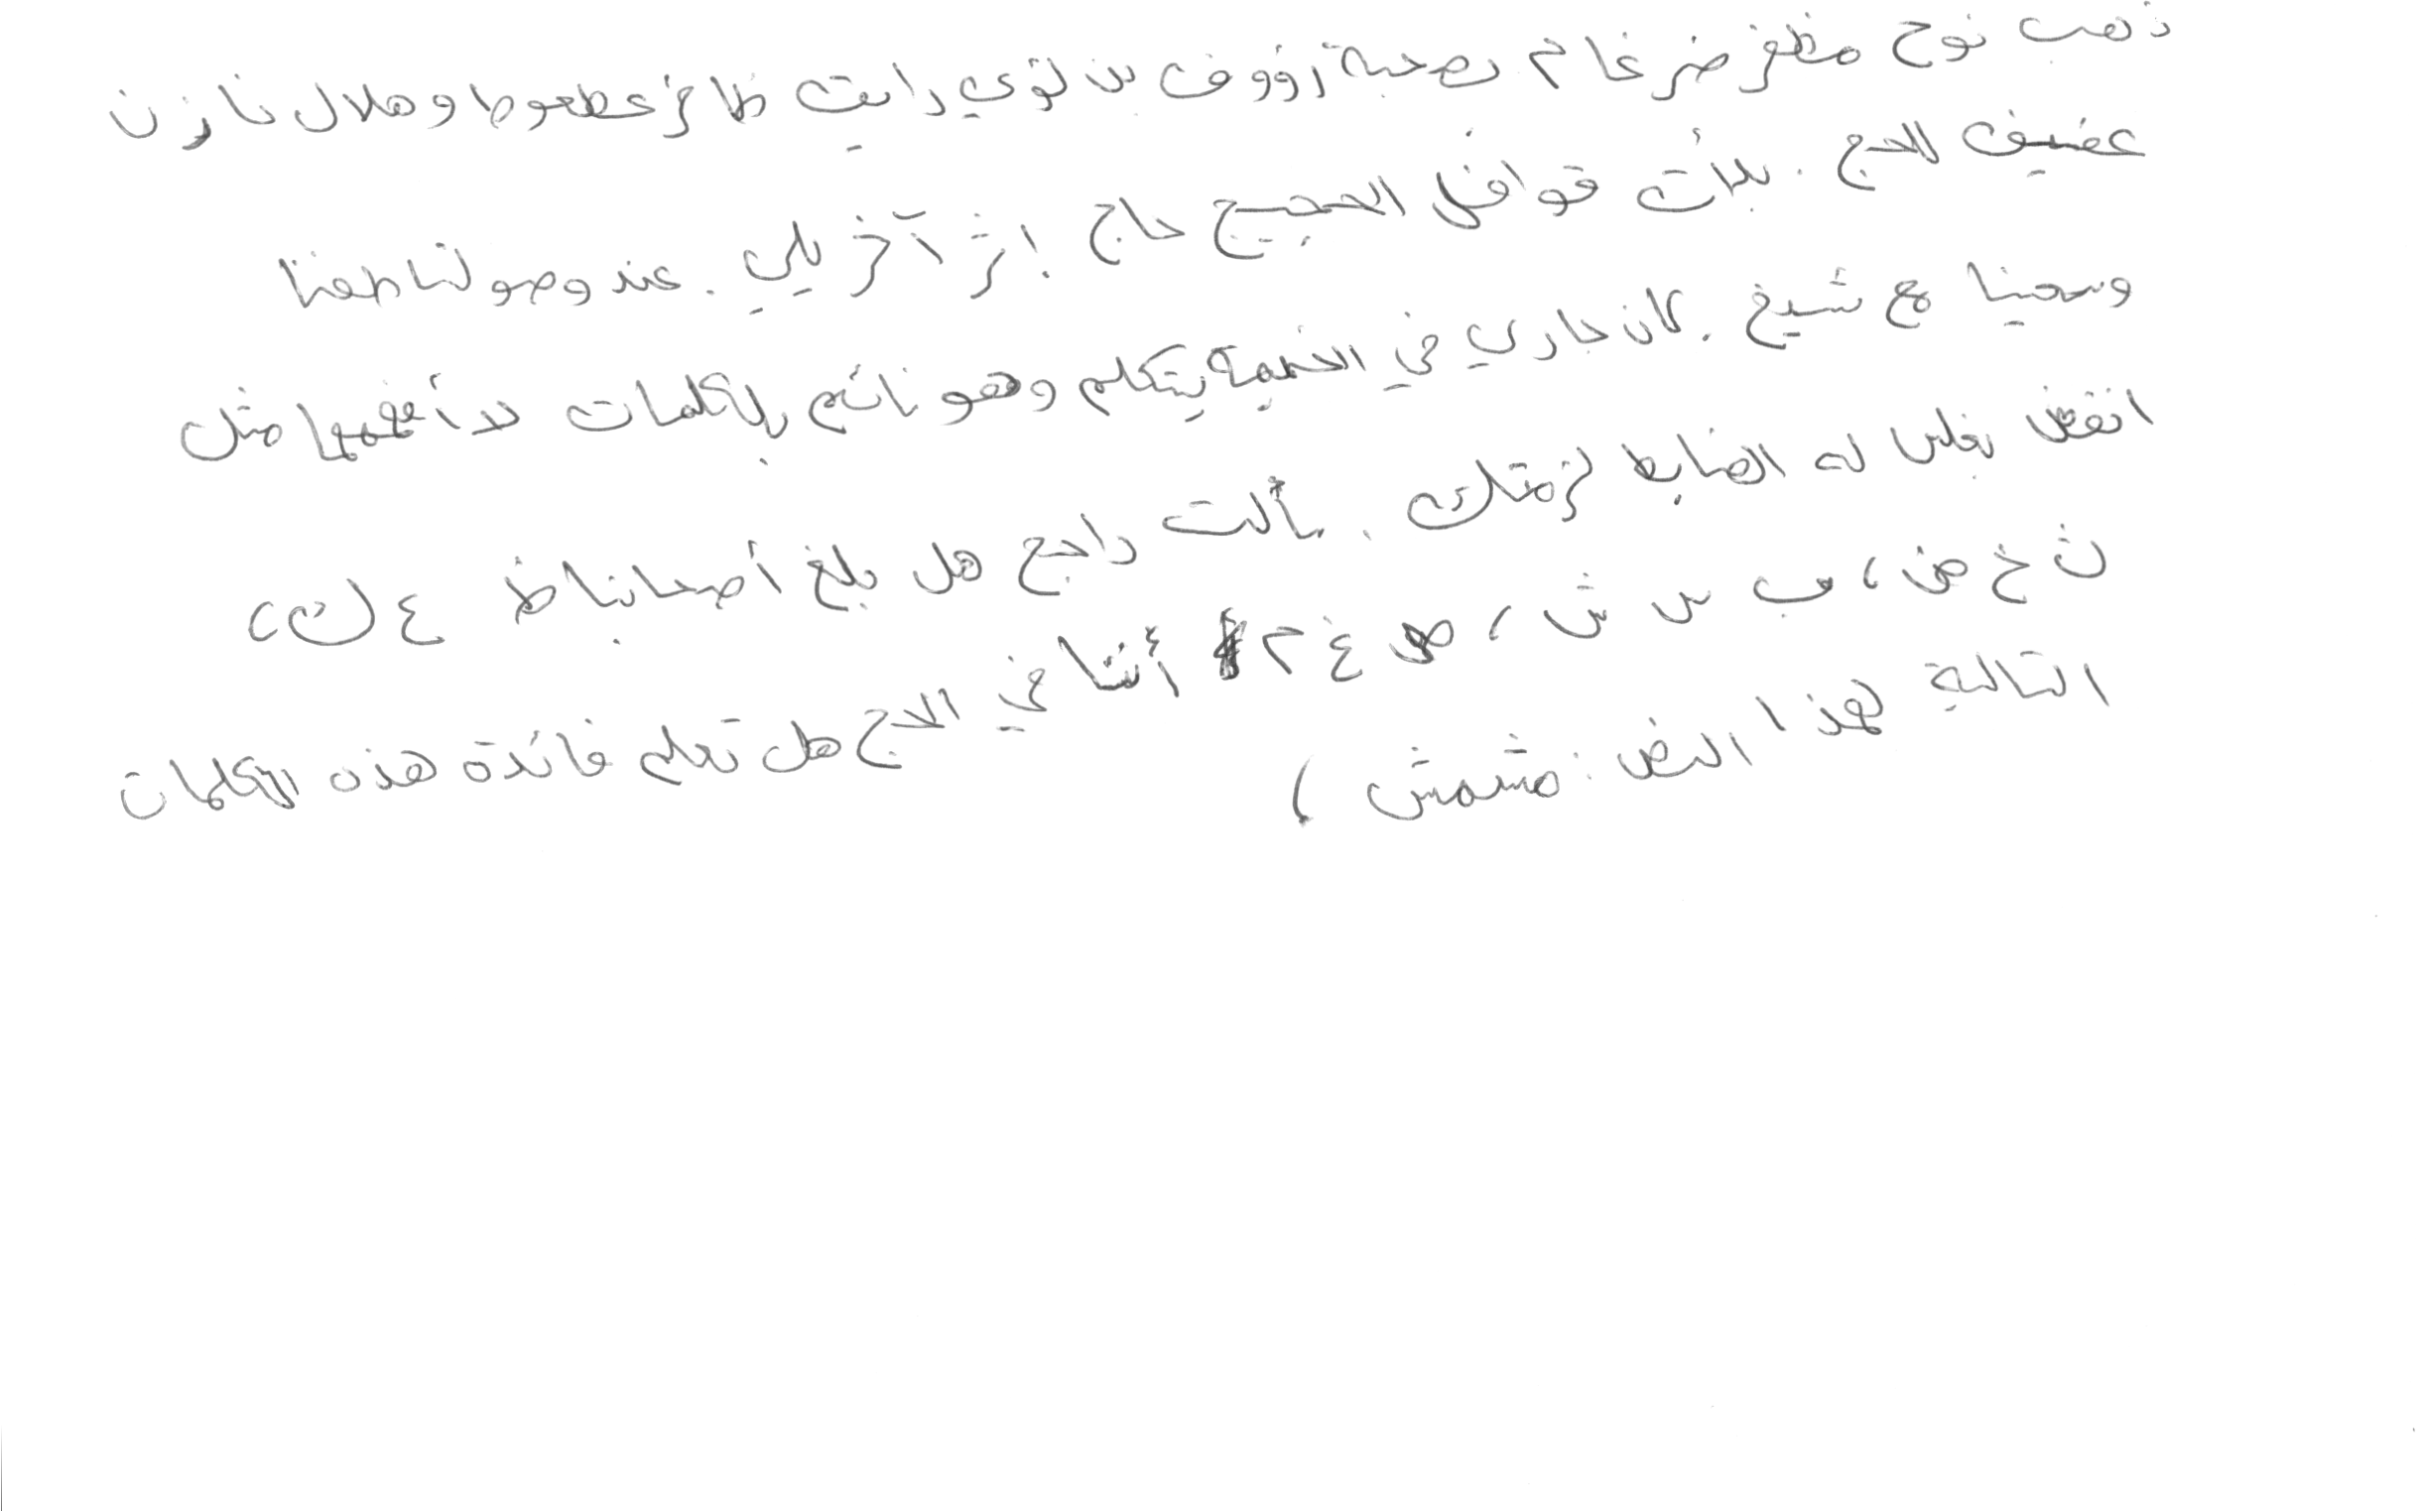 ذهب نوح مظفر ضرغام بصحبة رؤوف بن لؤي رايق ظافر عطعوط وهلال مازن
عفيف للحج . بدأت قوافل الحجيج حاج إثر آخر يلبي . عند وصولنا طفنا
وسعينا مع شيخ . كان جاري في الخيمة يتكلم وهو نائم بالكلمات لا أفهمها مثل
نغلس له الضابط لزمتك . سألت راجح هل بلغ أصحابنا ظ ع ك ،
ث خ ض ، ب س ش ، ص غ ح أثناء في الحج هل تعلم فائدة هذه الكلمات
التالية لهذا النص : مشمش )